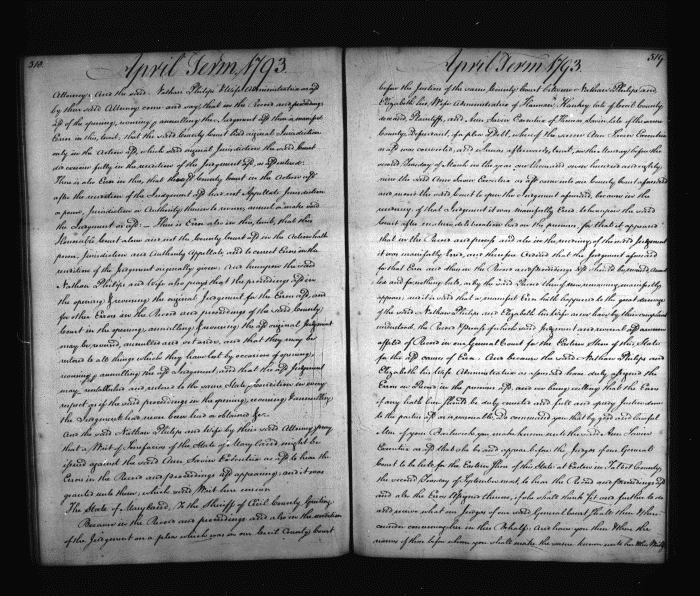 318.
April Term, 1793.
Attorney; And the said Nathan Philips & Wife Administratrix as aft
by their said Attorney come and say, that in the Record and proceedings
aft of the opening, reversing & annulling the Judgment aft there is manifest
Error in this, to wit, that the said County Court had original Jurisdiction
only in the Action aft, which said original Jurisdiction the said Court
did exercise fully in the rendition of the Judgment aft, as aft stated.
There is also Error in this, that the said County Court in the Action aft
after the rendition of the Judgment aft had not Appellate Jurisdiction
a power, Jurisdiction or Authority thence to reverse, annul or make void
the Judgment as aft. — There is Error also in this, to wit, that this
Honorable Court alone and not the County Court aft in the Action hath
power Jurisdiction and Authority Appellate, and to correct Errors in the
rendition of the Judgment originally given. And hereupon the said
Nathan Philips and Wife also prays that the proceedings aft in
the opening, & reversing the original Judgment for the Error aft, and
for other Errors in the Record and proceedings of the said County
Court in the opening, annulling & reversing the aft original Judgment
may be reversed, annulled and set aside, and that they may be
restored to all things which they have lost by occasion of opening,
reversing & annulling the aft Judgment, and that the aft Judgment
may reestablished and restored to the same State & Condition in every
respect as if the said proceedings in the opening, reversing & annulling
the Judgment had never been had or obtained &c.
And the said Nathan Philips and Wife by their said Attorney pray
that a Writ of Scirefacias of the State of Maryland might be
issued against the said Ann Savin Executrix as aft to hear the
Errors in the Record and proceedings aft appearing, and it was
granted unto them, which said Writ here ensues
The State of Maryland, To the Sheriff of Cecil County Greeting
Because in the Record and proceedings and also in the rendition
of the Judgment on a plea which was in our Court County Court
319
April Term 1793.
before the Justices of the same County Court between Nathan Philips and
Elizabeth his Wife Administratrix of Hannah late of Cecil County
deceased Plaintiffs, and Ann Savin Executrix of Thomas Savin late of the same
County Defendant of a plea Debt, whereof the same Ann Savin Executrix
as aft was convicted, and whereas afterwards, to wit, on the tuesday before the
second Tuesday of March in the year one thousand seven hundred and eighty
nine the said Ann Savin Executrix as aft came into our County Court aforesaid
and moved the said Court to open the Judgment aforesaid, because in the
rendering of that Judgment it was manifestly Erred. Whereupon the said
Court after mature deliberation had on the premises, for that it appeared
that in the Record and process and also in the rendering of the said Judgment
it was manifestly Erred, and therefore Ordered that the Judgment aforesaid
for that Error and others in the Record and proceedings aft should be reversed, Annul-
led and for nothing had, as by the said Record thereof now remaining manifestly
appears, and it is said that a manifest Error hath happened to the great damage
of the said Nathan Philips and Elizabeth his Wife as we have by their complaint
understood, the Record & Process of which said Judgment and reversal aft we now
affiled of Record in our General Court for the Eastern Shore of this State
for the aft causes of Error. And because the said Nathan Philips and
Elizabeth his Wife Administratrix as aforesaid have duly assigned the
Errors in Record in the premises aft, and we being willing that the Error
if any hath been should be duly corrected and full and speedy Justice done
to the parties aft as is reasonable, Do command you that by good and lawful
Men of your Bailiwick you make known unto the said Ann Savin
Executrix as aft that she be and appear before the Judges of our General
Court to be held for the Eastern Shore of this State at Easton in Talbot County,
the second Tuesday of September next, to hear the Record and proceedings aft
and also the Errors assigned thereon, if she shall think fit, and further to do
and receive what our Judges of our said General Court shall then & there
consider concerning her in this Behalf. And have you then & there the
names of those before whom you shall make the same known unto her & this Writ.